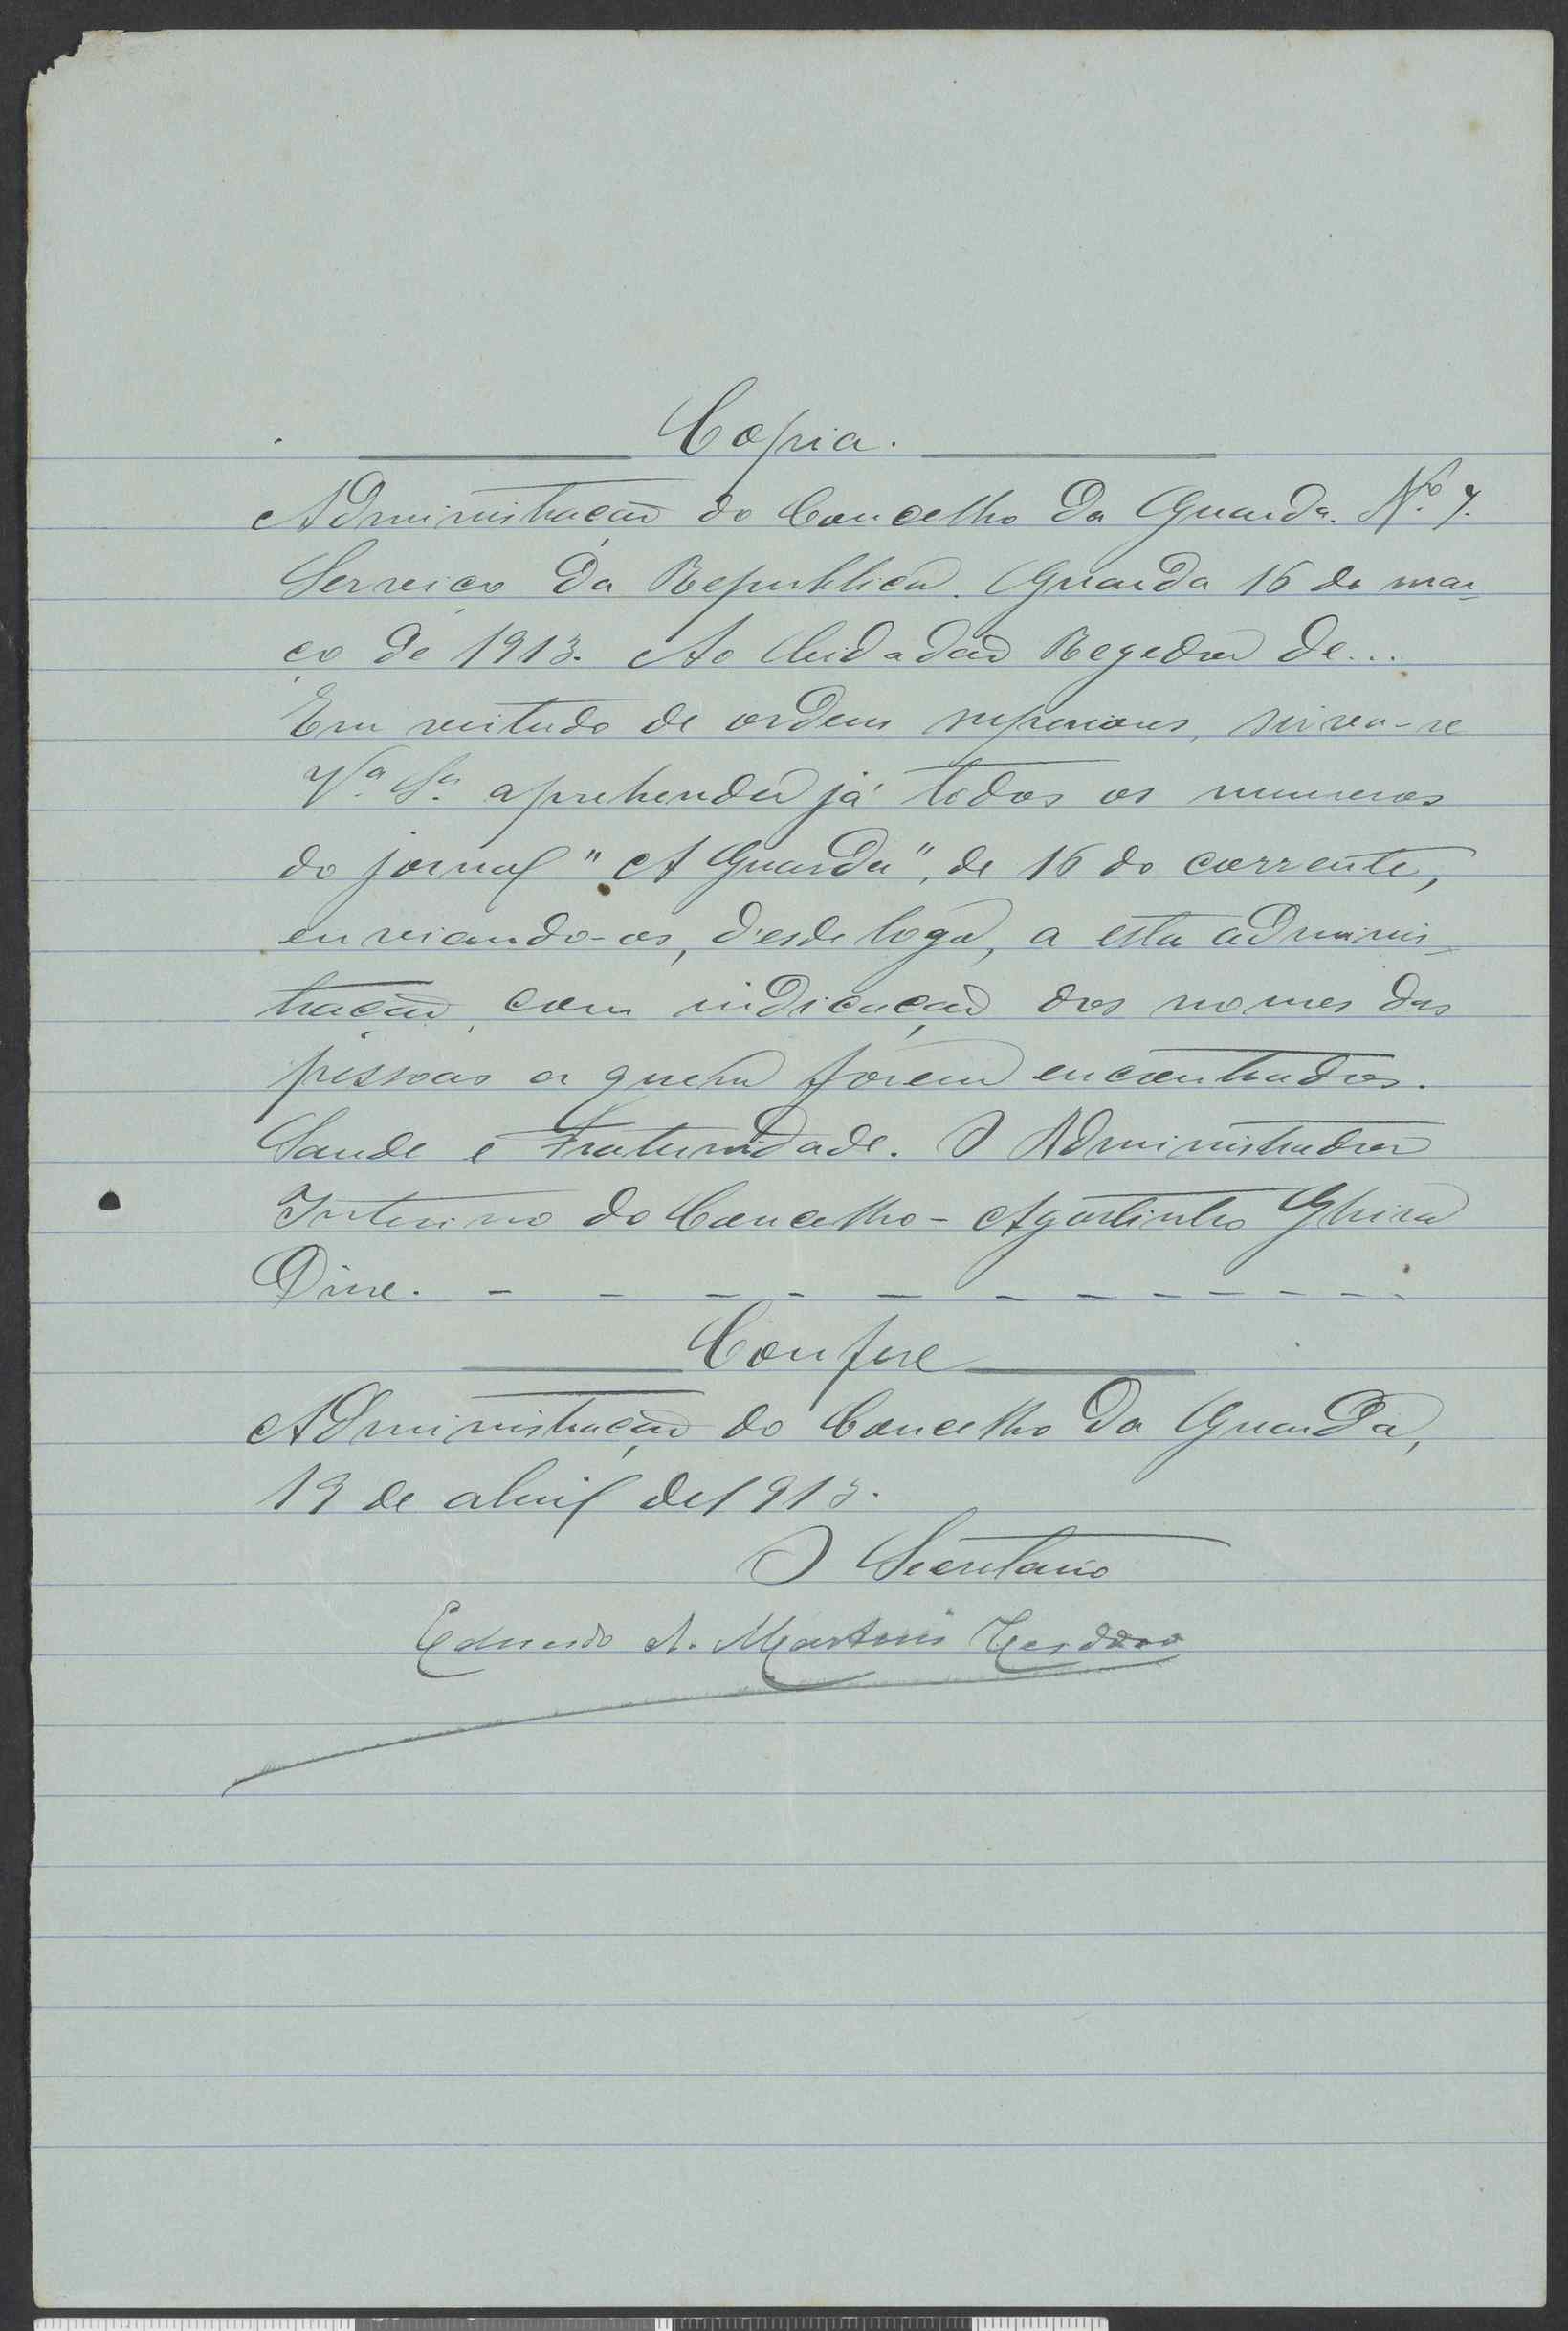 Copia.
Administração do Concelho da Guarda. Nº 7.
Serviço da Republica. Guarda 16 de mar-
ço de 1913. Ao Cidadão Regedor de...
Em virtude de ordens superiores, sirva-se
Vª Sª aprehender já todos os numeros
do jornal "A Guarda", de 16 do corrente,
enviando-os, desde logo, a esta adminis-
tração, com indicação dos nomes das
pessoas a quem fôrem encontrados.
Saude e Fraternidade. O Administrador
Interino do Concelho - Agostinho Ghira
Dine. - - - - - - - - - - - -
Confere
Administração do Concelho da Guarda,
19 de abril de 1913.
O Secretario
Eduardo A. Martins